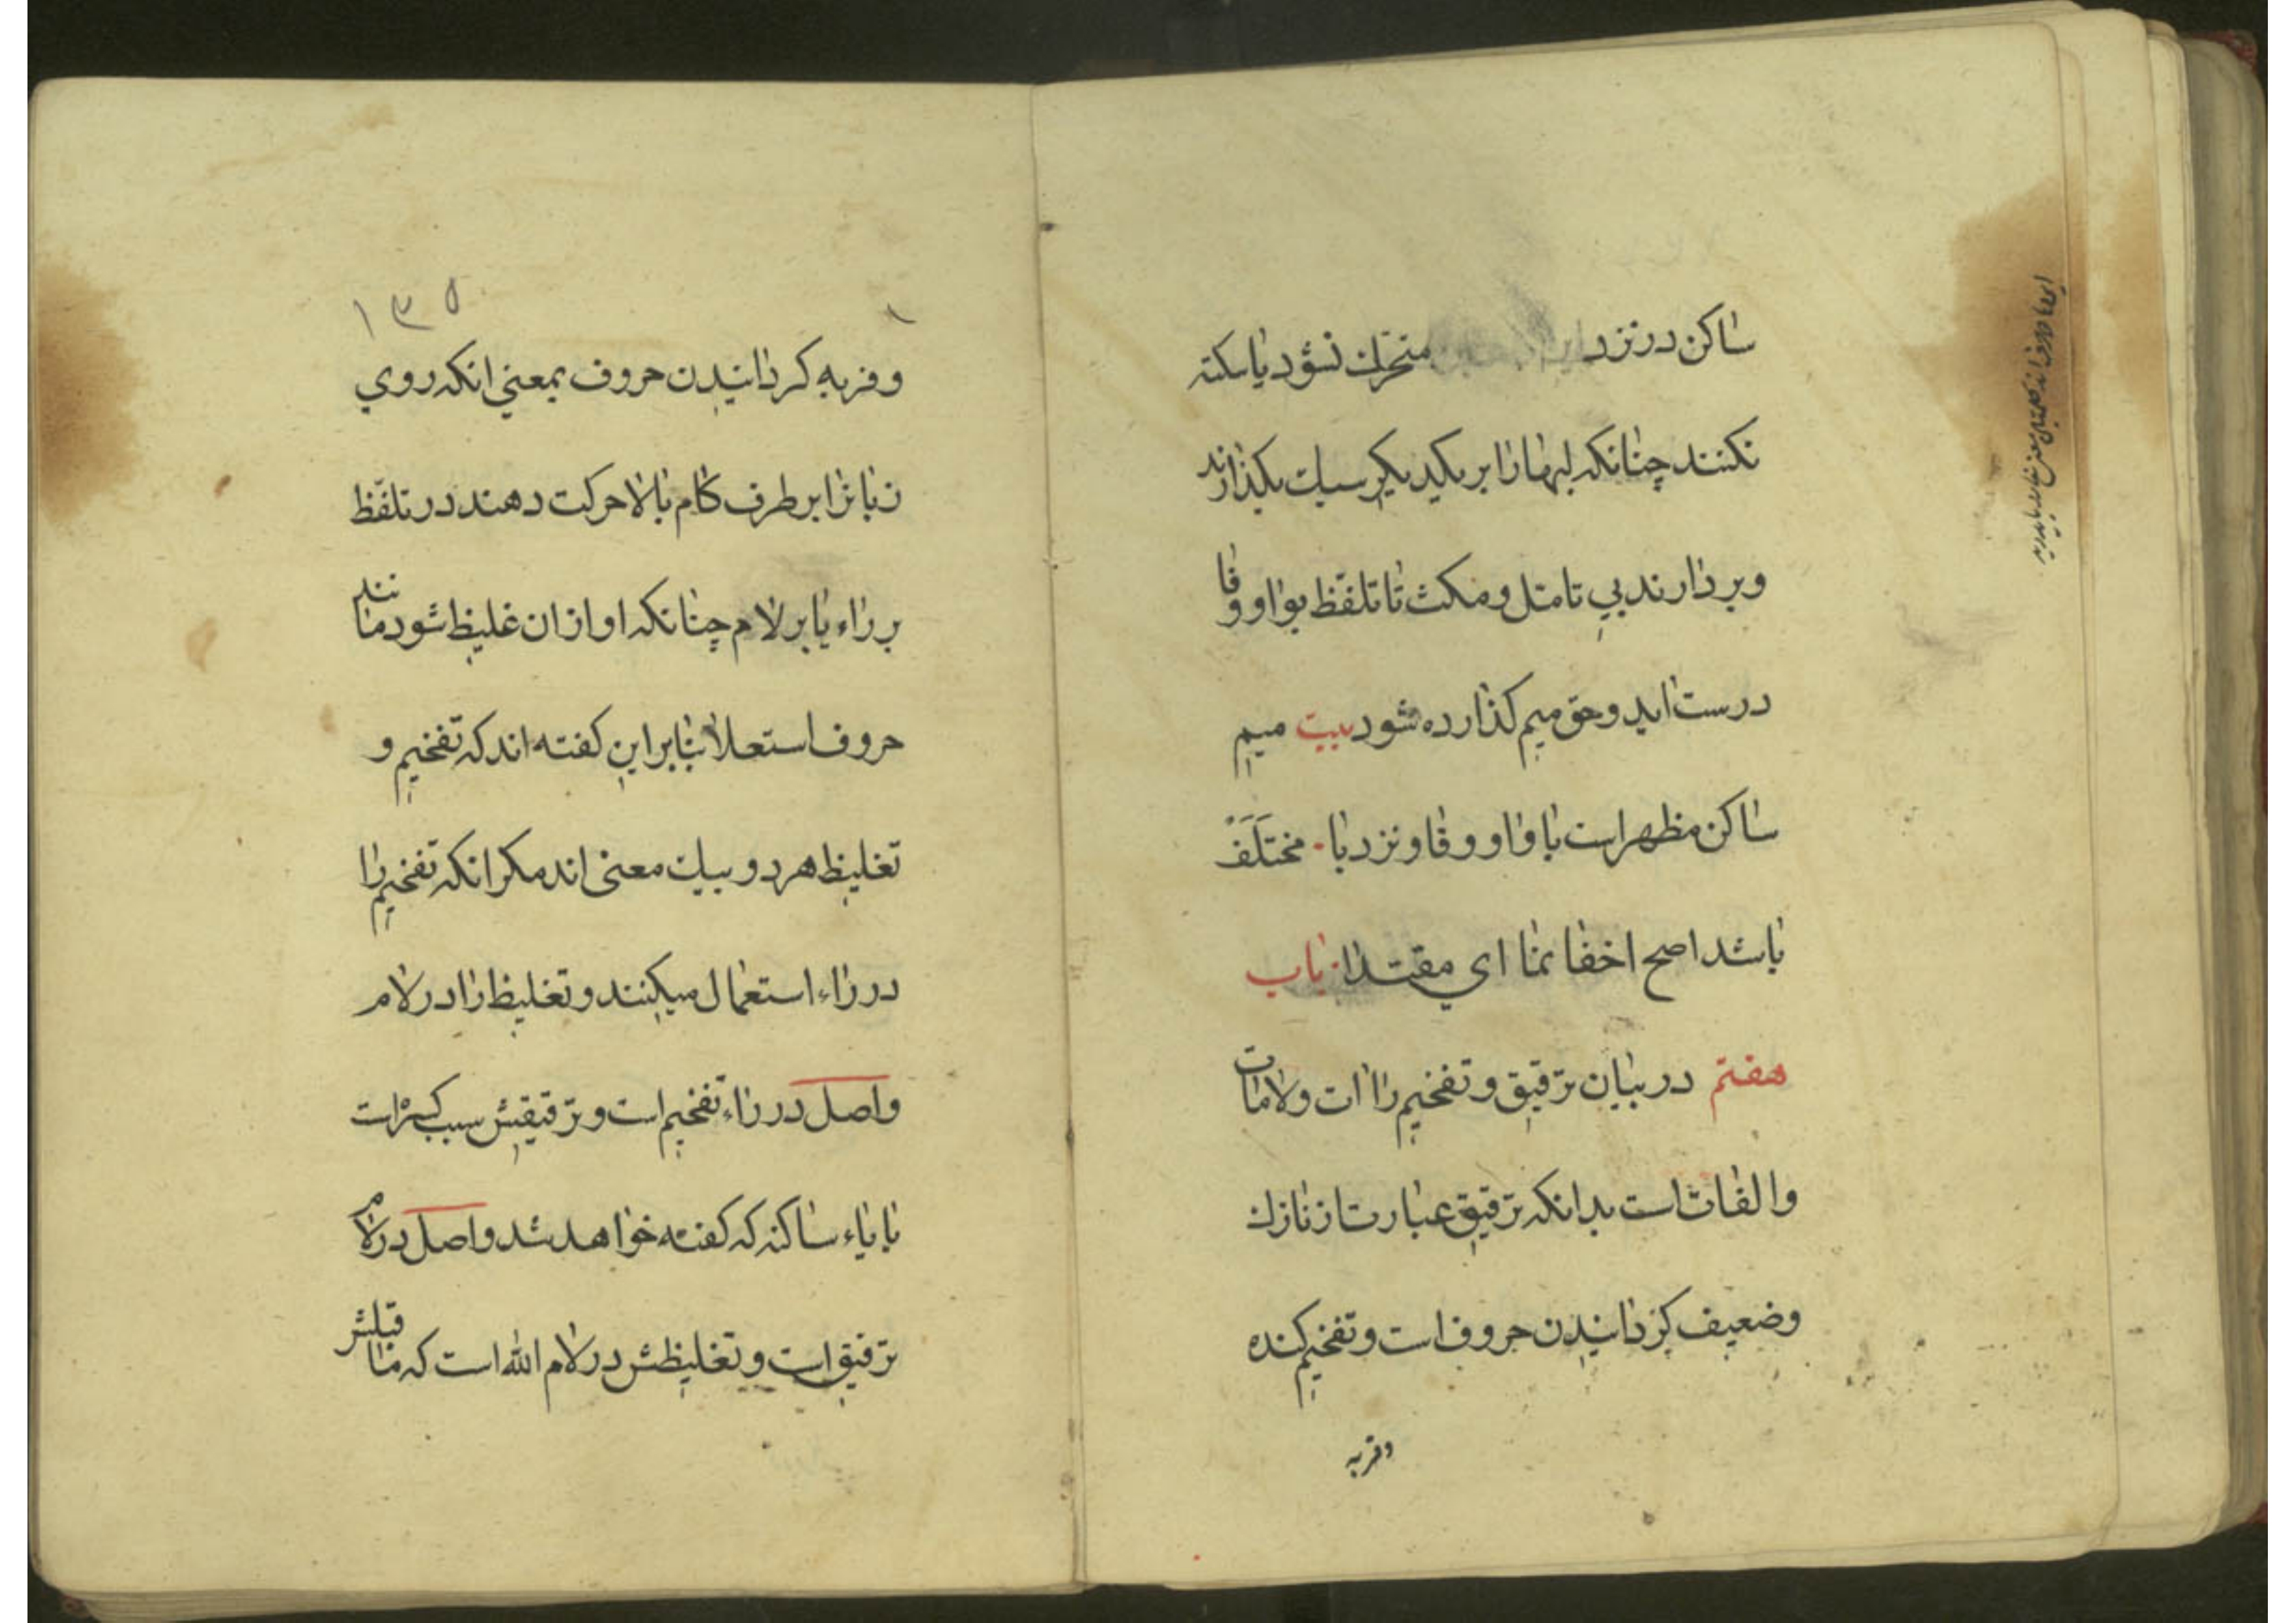 ساکن در نزد متحرك نشود یا سکته
نکنند چنانکه لبها را بر یکدیکر سبك بکذارند
و بر دارند بی تامتل و مکث تا تلفّظ بواو و فا
درست اید و حق میم کذارده شود بیت میم
ساکن مظهر است با واو و فا و نزد با مختَلَفْ
باشد اصح اخفا نما ای مقتدا باب
هفتم در بیان ترقیق و تفخیم راات و لامات
و الفات است بدانکه ترقیق عبارت از نازك
و ضعیف کردانیدن حروف است و تفخیم کنده
و فربه
۱۳۵
و فربه کردانیدن حروف بمعنی انکه روی
زبانرا بر طرف کام بالا حرکت دهند در تلفّظ
بر راء یا بر لام چنانکه اواز ان غلیظ شود مانند
حروف استعلا بنا بر این کفته اند که تفخیم و
تغلیظ هر دو بیك معنی اند مکر انکه تفخیم را
در راء استعمال میکنند و تغلیظ را در لام
و اصل در راء تفخیم است و ترقیقش سبب کسر است
با یاء ساکنه که کفته خواهد شد و اصل در لام
ترقیق است و تغلیظش در لام الله است که ما قبلش